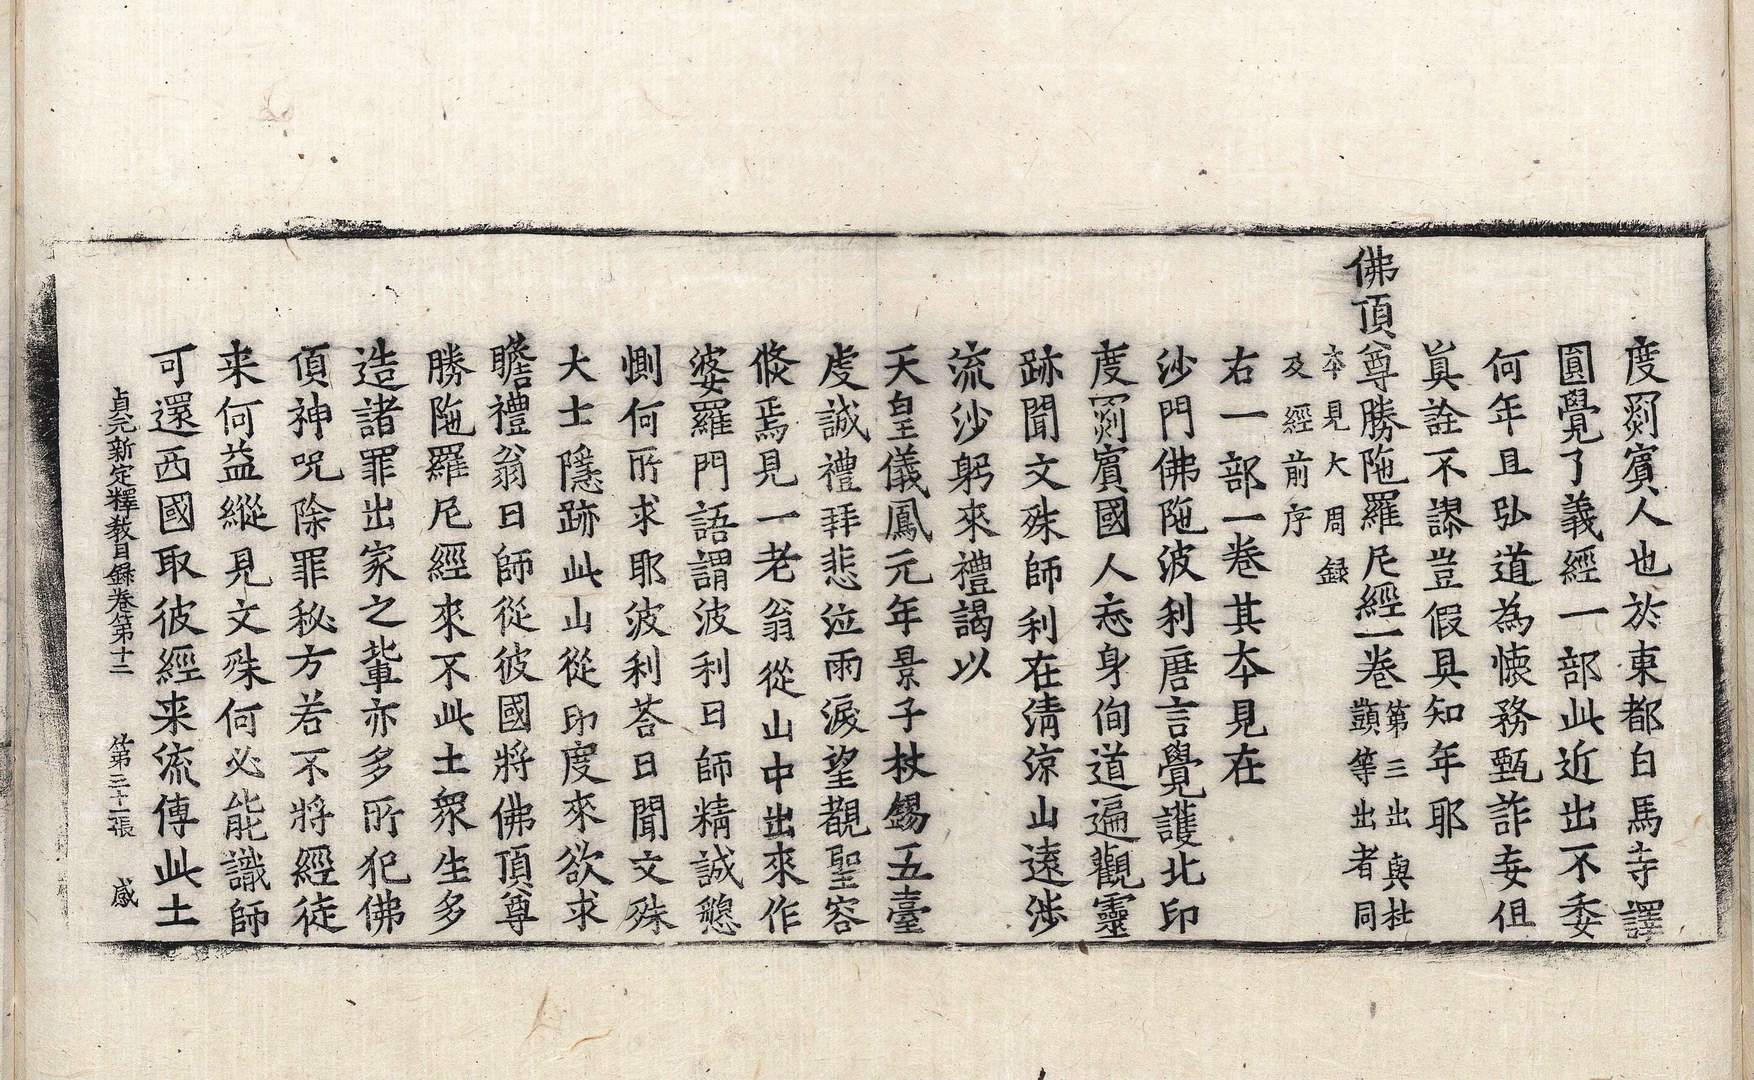 度罽賓人也於東都白馬寺譯
圓覺了義經一部此近出不委
何年且弘道為懷務甄詐妄但
眞詮不謬豈假具知年耶
佛頂尊勝陁羅尼經一卷 第三出與杜顗等出者同
本見大周録
及經前序
右一部一卷其本見在
沙門佛陁波利唐言覺護北印
度罽賓國人忘身侚道遍觀靈
跡聞文殊師利在淸涼山遠涉
流沙躬來禮謁以
天皇儀鳳元年景子杖錫五臺
虔誠禮拜悲泣雨淚望覩聖容
倐焉見一老翁從山中出來作
婆羅門語謂波利曰師精誠懇
惻何所求耶波利荅曰聞文殊
大士隱跡此山從印度來欲求
瞻禮翁曰師從彼國將佛頂尊
勝陁羅尼經來不此土衆生多
造諸罪出家之軰亦多所犯佛
頂神呪除罪秘方若不將經徒
来何益縱見文殊何必能識師
可還西國取彼經来流傳此土
貞元新定釋教目録卷第十二 第三十二張 感